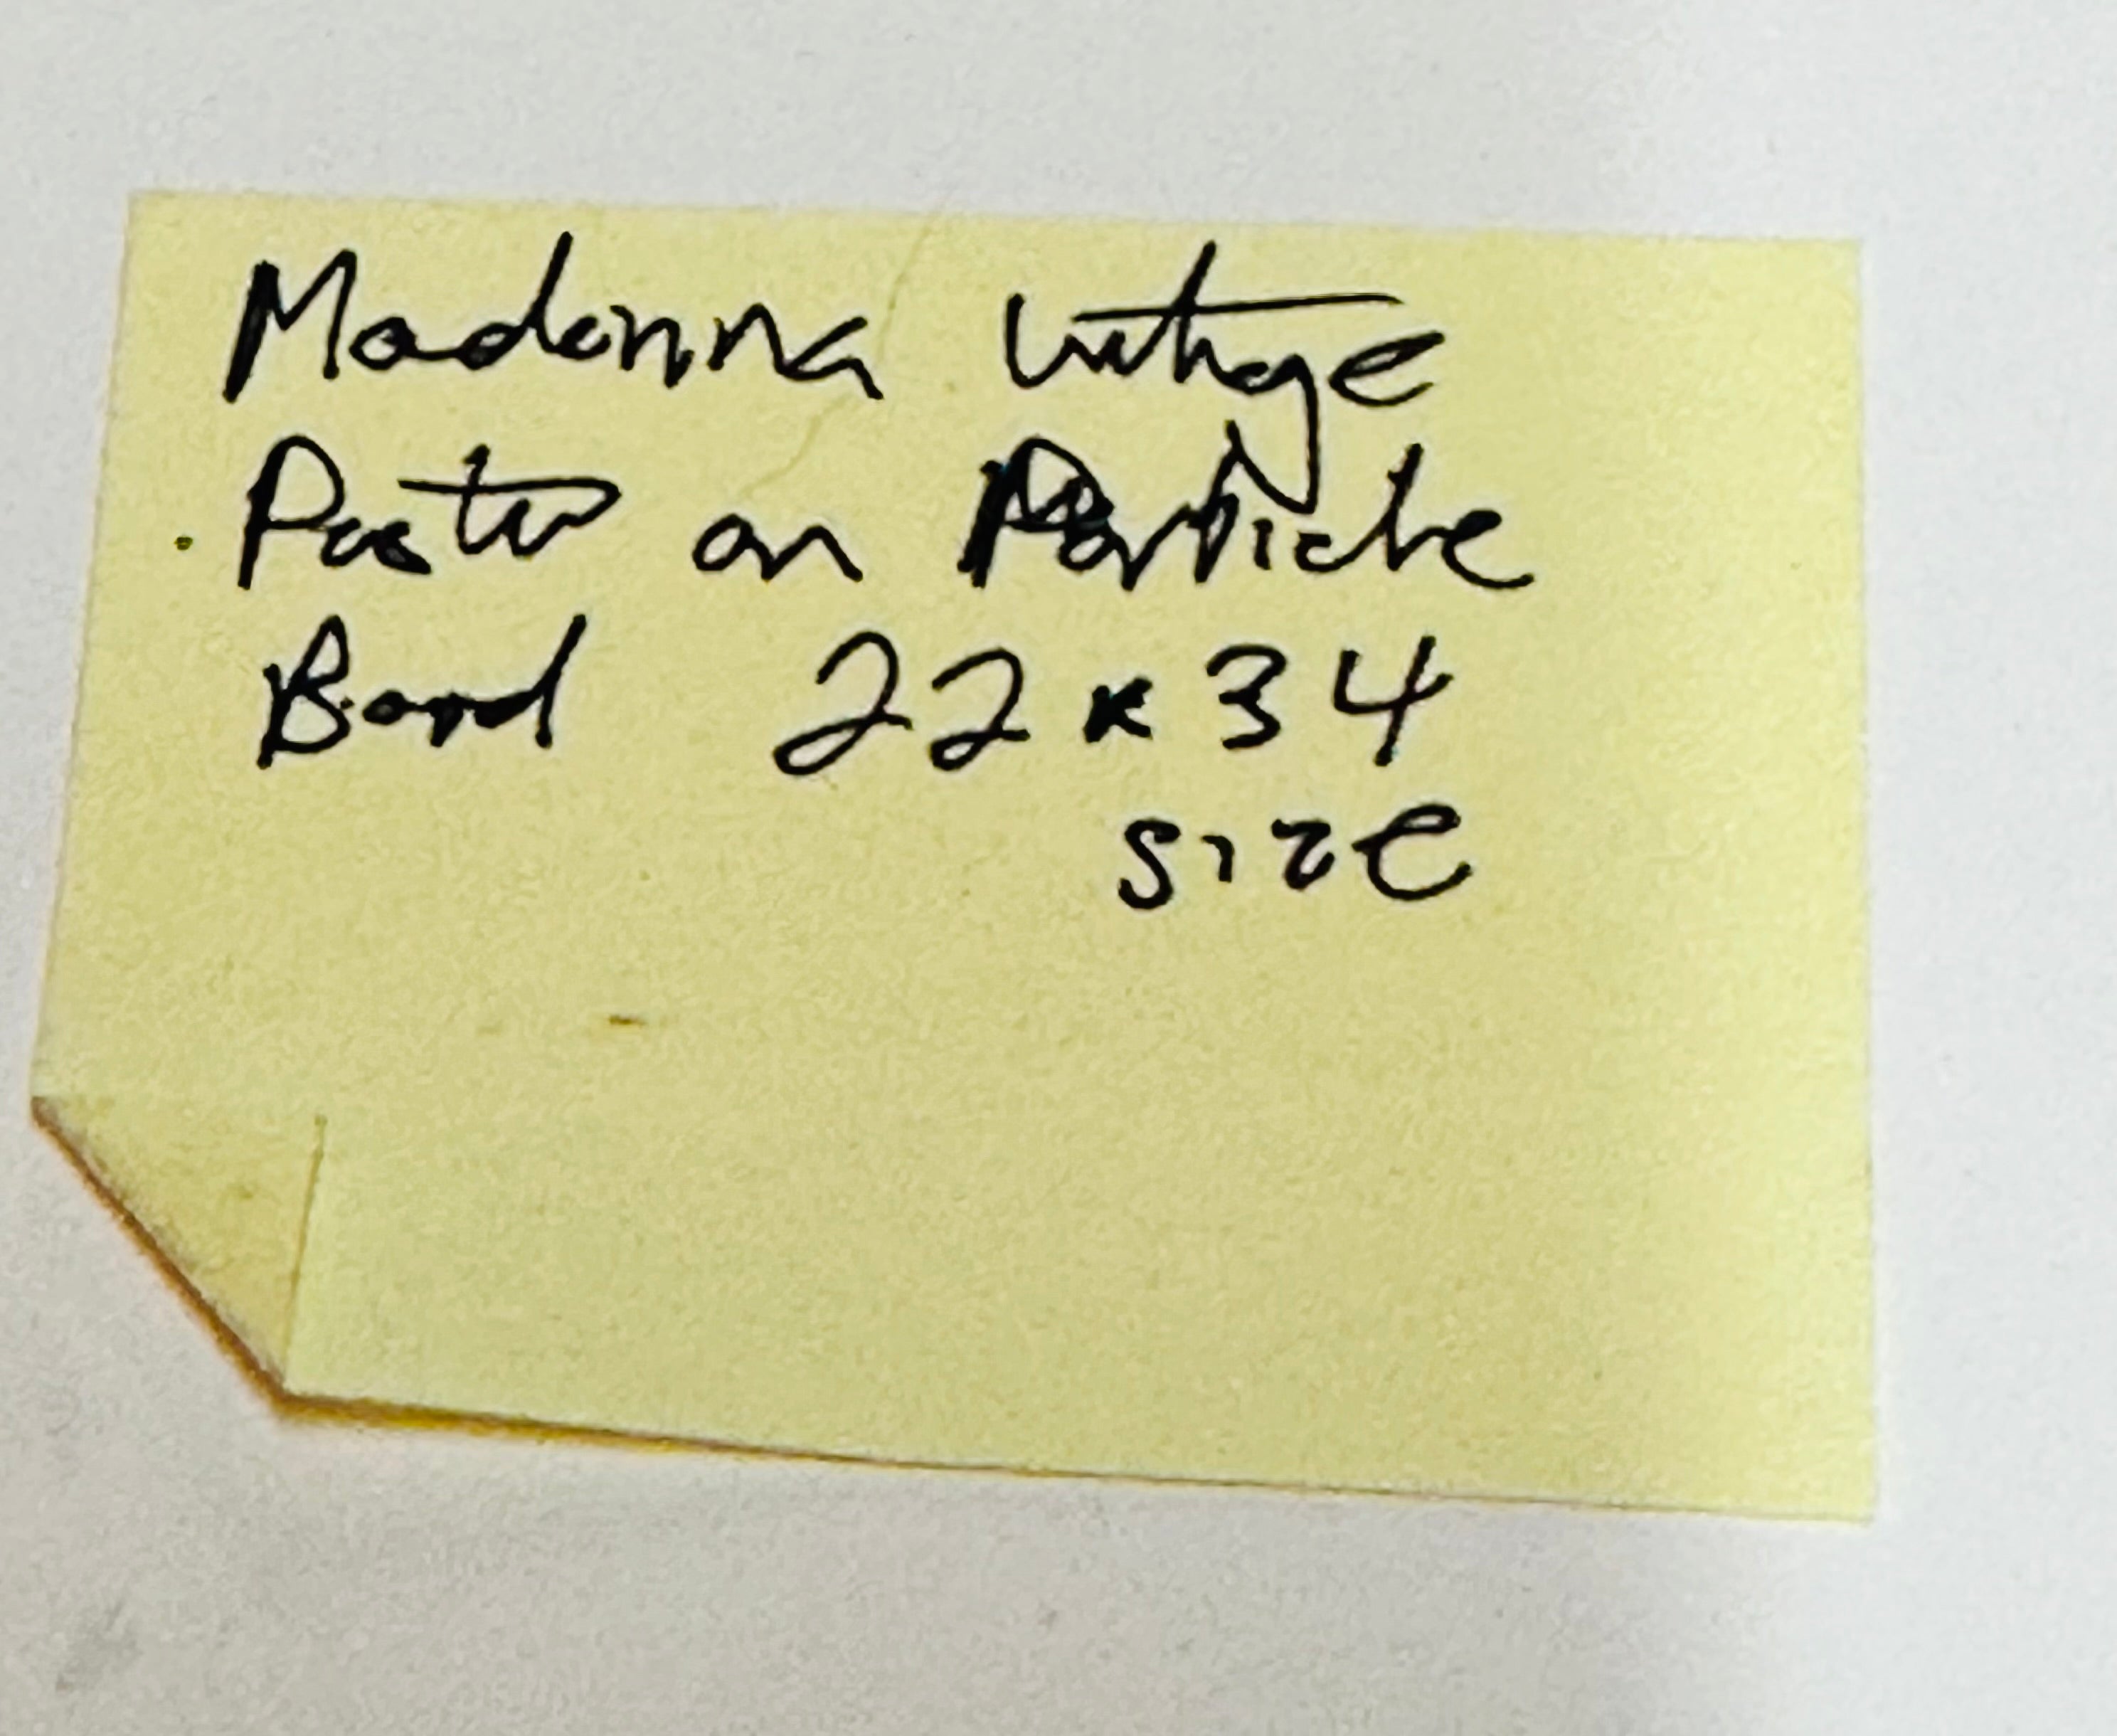 Madonna Vintage
Poster on Particle
Board 22 x 34
size